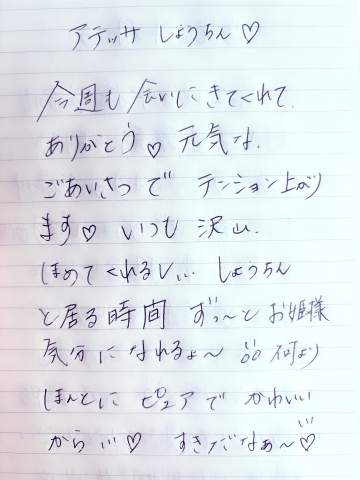 アテッサ しょうちん♡
今週も 会いにきてくれて
ありがとう♡ 元気な
ごあいさつで テンション上がり
ます♡ いつも 沢山
ほめてくれるし... しょうちん
と居る時間 ずっ〜と お姫様
気分になれるょ〜 何より
ほんとに ピュアで かわいい
から...♡ すきだなぁ〜♡